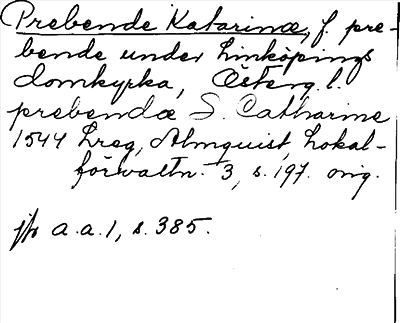 Prebende Katarinæ, f. pre-
bende under Linköpings
domkyrka, Österg. l.
prebendæ S. Catharine
1544 Lreg, Almquist, Lokal-
förvaltn. 3, s. 197. orig.
jfr a.a. 1, s. 385.